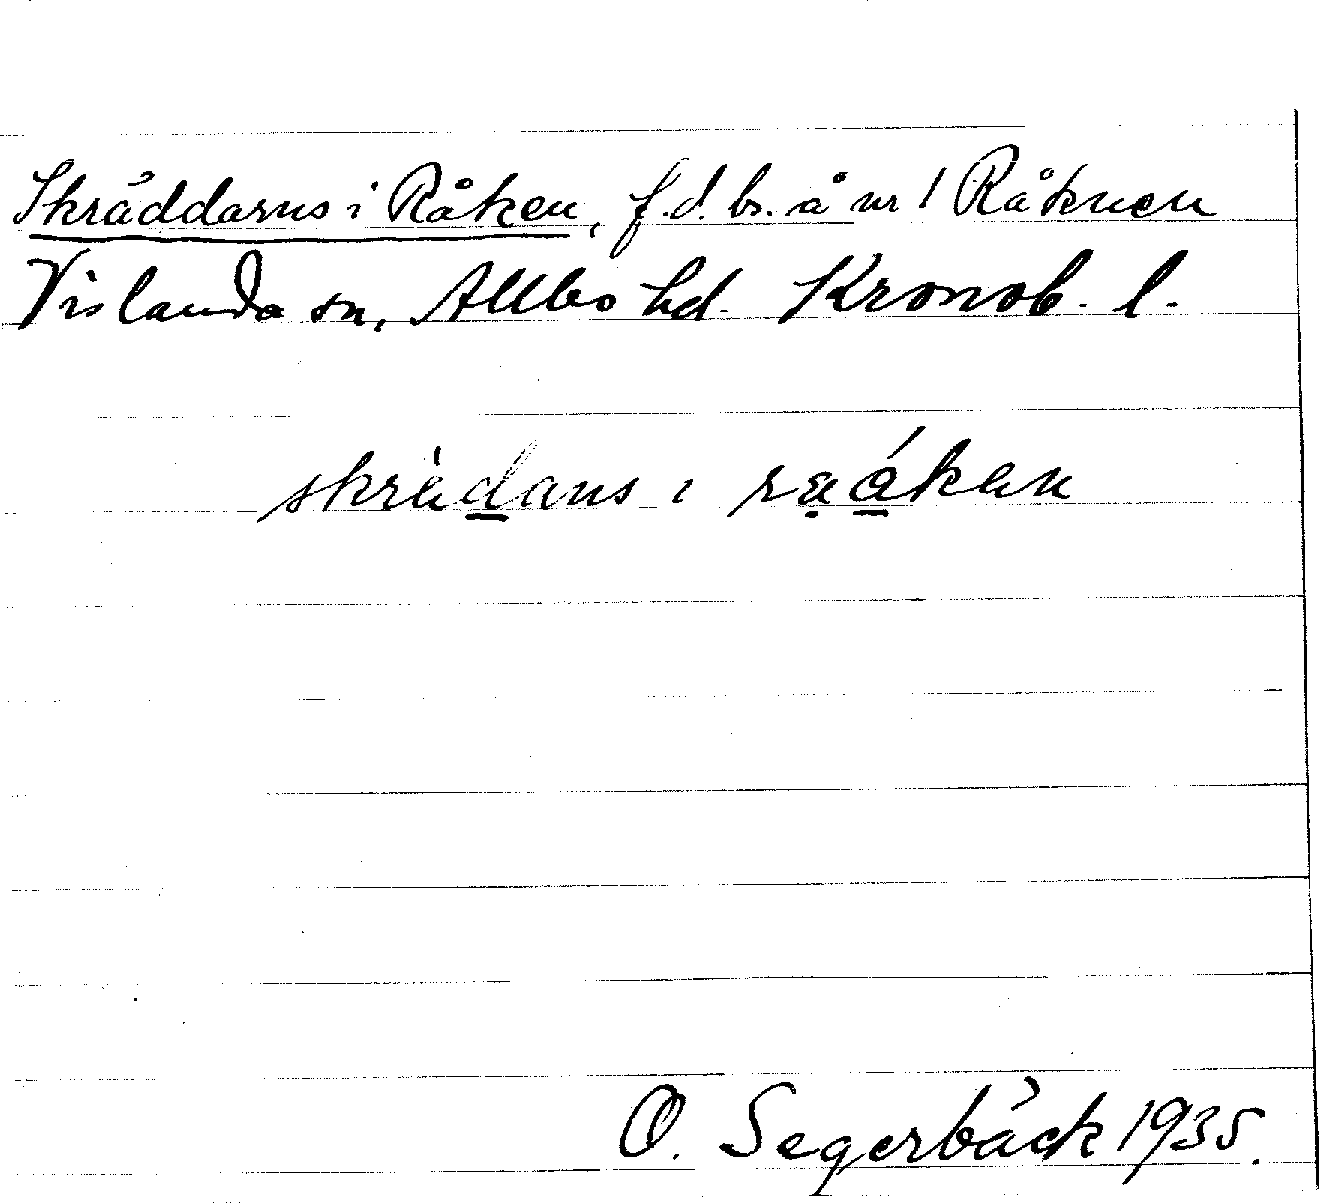 Skräddarns i Råken, f.d. bs. å nr 1 Råknen
Vislanda sn, Allbo hd. Kronob. l.
skrädans i
O. Segerbäck 1935.